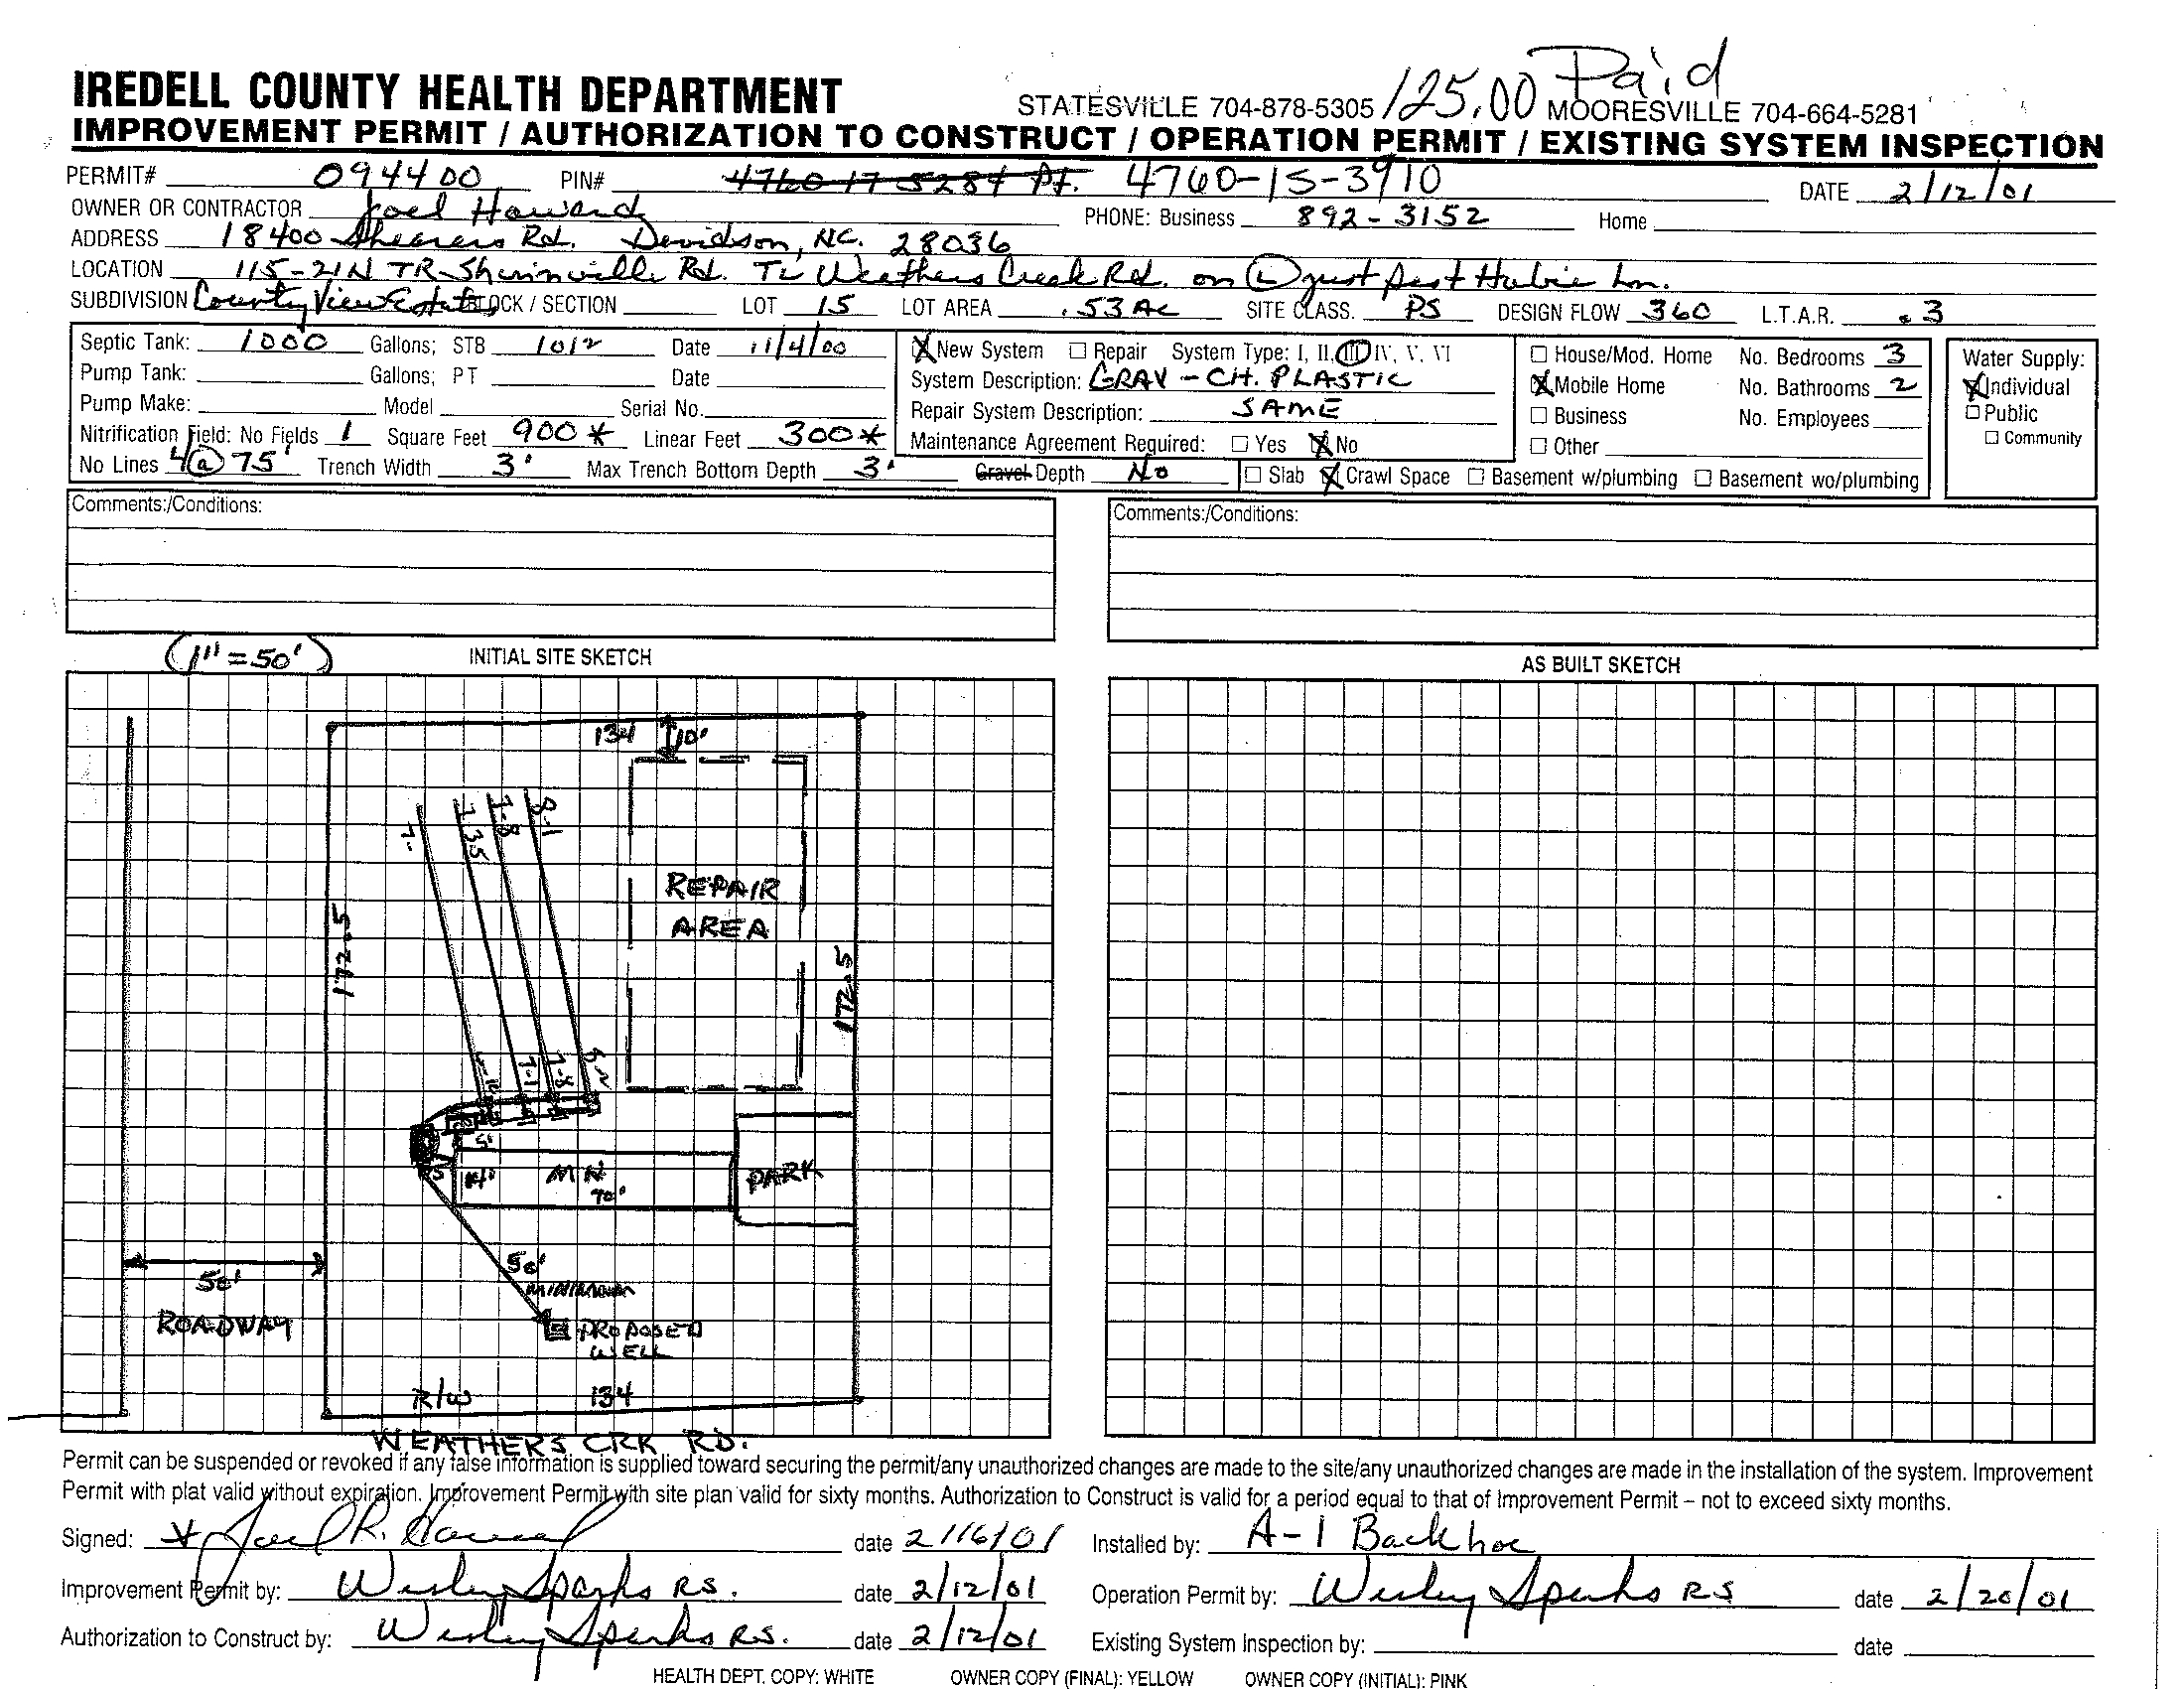 125.00 Paid
IREDELL COUNTY HEALTH DEPARTMENT STATESVILLE 704-878-5305 MOORESVILLE 704-664-5281
IMPROVEMENT PERMIT / AUTHORIZATION TO CONSTRUCT / OPERATION PERMIT / EXISTING SYSTEM INSPECTION
PERMIT# 094400 PIN# 4760-17-5284 Pt. 4760-15-3910 DATE 2/12/01
OWNER OR CONTRACTOR Joel Howard PHONE: Business 892-3152 Home
ADDRESS 18400 Shearers Rd. Davidson, NC. 28036
LOCATION 115-21N TR-Shinnville Rd. TL Weathers Creek Rd. on L just past Hobie Ln.
SUBDIVISION County View Estates BLOCK / SECTION LOT 15 LOT AREA .53 Ac SITE CLASS. PS DESIGN FLOW 360 L.T.A.R. .3
Septic Tank: 1000 Gallons; STB 1012 Date 11/4/00 X New System Repair System Type: I, II, III IV, V, VI House/Mod. Home No. Bedrooms 3 Water Supply:
Pump Tank: Gallons; PT Date System Description: GRAV - CH. PLASTIC X Mobile Home No. Bathrooms 2 X Individual
Pump Make: Model Serial No. Repair System Description: SAME Business No. Employees Public
Nitrification Field: No Fields 1 Square Feet 900* Linear Feet 300* Maintenance Agreement Required: Yes X No Other Community
No Lines 4@75' Trench Width 3' Max Trench Bottom Depth 3' Gravel Depth No Slab X Crawl Space Basement w/plumbing Basement wo/plumbing
Comments:/Conditions: Comments:/Conditions:
(1"=50') INITIAL SITE SKETCH AS BUILT SKETCH
134 10'
7. 7.35 7-8 8-1
REPAIR
AREA
172.5 172.5
7-1 7-8
5'
5 14' MH 70' PARK
50'
MINIMUM
50'
ROADWAY PROPOSED
WELL
R/W 134
WEATHERS CRK RD.
Permit can be suspended or revoked if any false information is supplied toward securing the permit/any unauthorized changes are made to the site/any unauthorized changes are made in the installation of the system. Improvement
Permit with plat valid without expiration. Improvement Permit with site plan valid for sixty months. Authorization to Construct is valid for a period equal to that of Improvement Permit – not to exceed sixty months.
Signed: Joel R. Howard date 2/16/01 Installed by: A-1 Backhoe
Improvement Permit by: Wesley Sparks RS. date 2/12/01 Operation Permit by: Wesley Sparks RS date 2/20/01
Authorization to Construct by: Wesley Sparks R.S. date 2/12/01 Existing System Inspection by: date
HEALTH DEPT. COPY: WHITE OWNER COPY (FINAL): YELLOW OWNER COPY (INITIAL): PINK